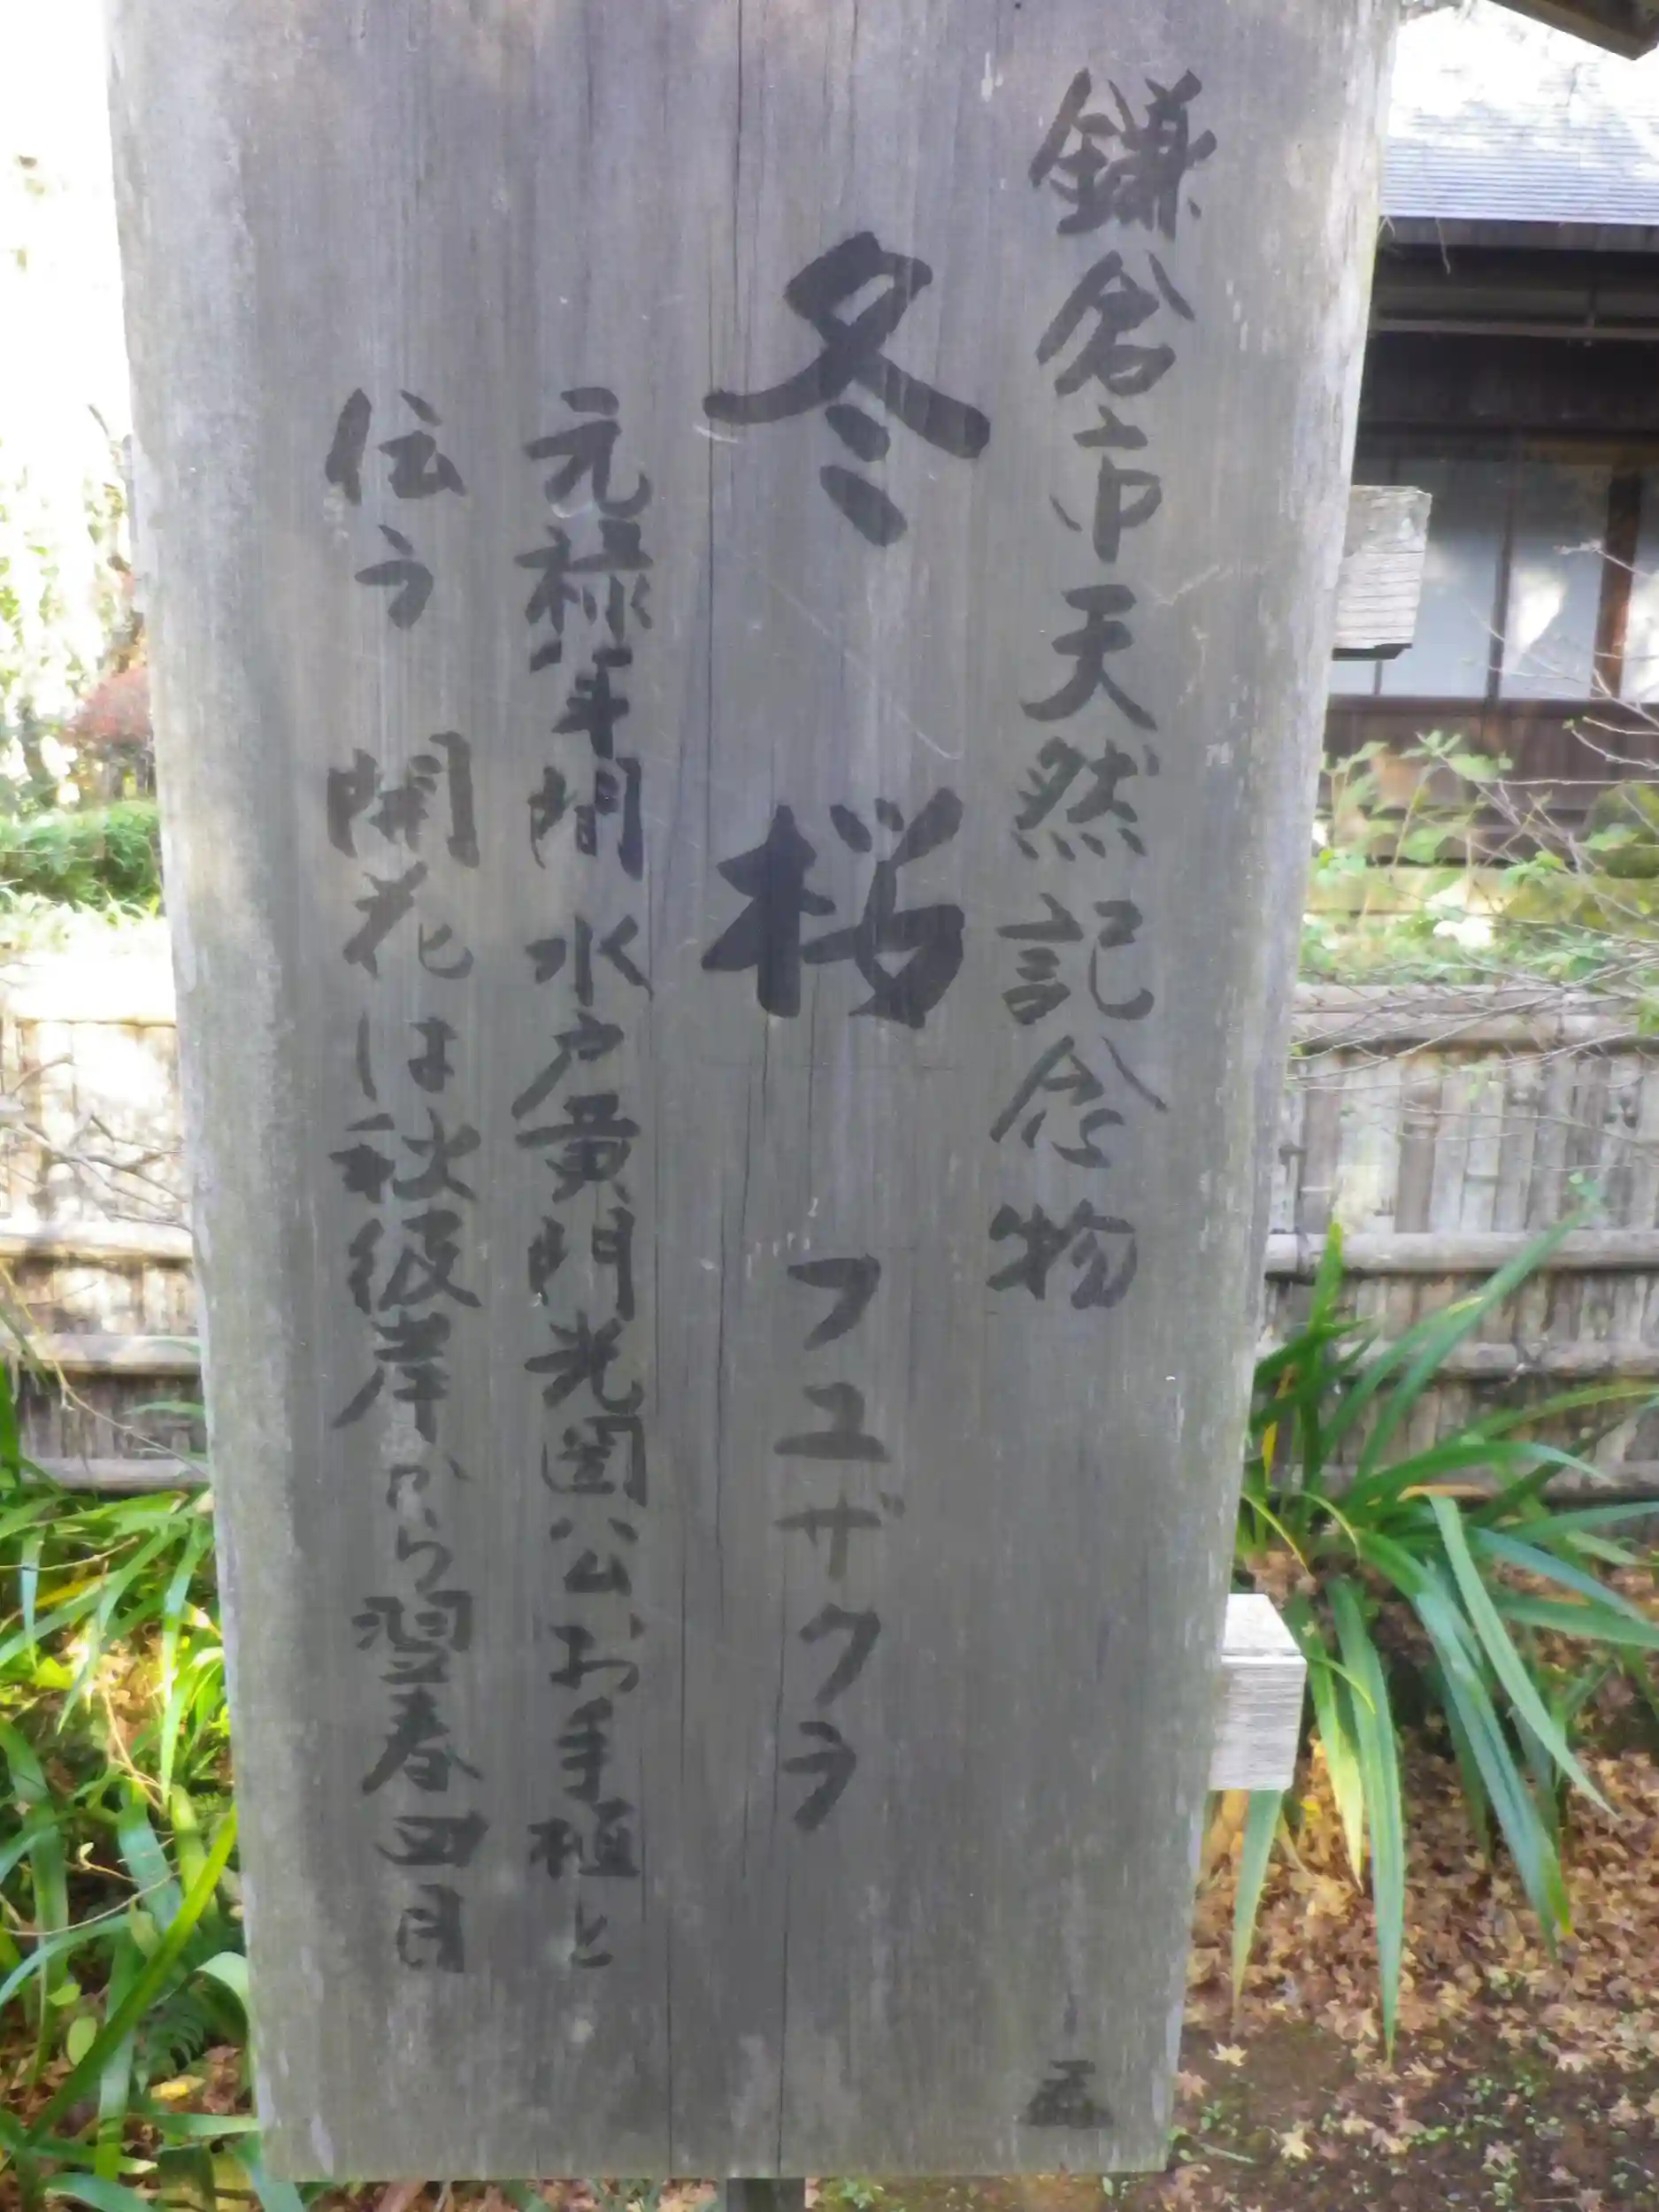 鎌倉市天然記念物
冬桜 フユザクラ
元禄年間水戸黄門光圀公お手植と
伝う 開花は秋彼岸から翌春四月